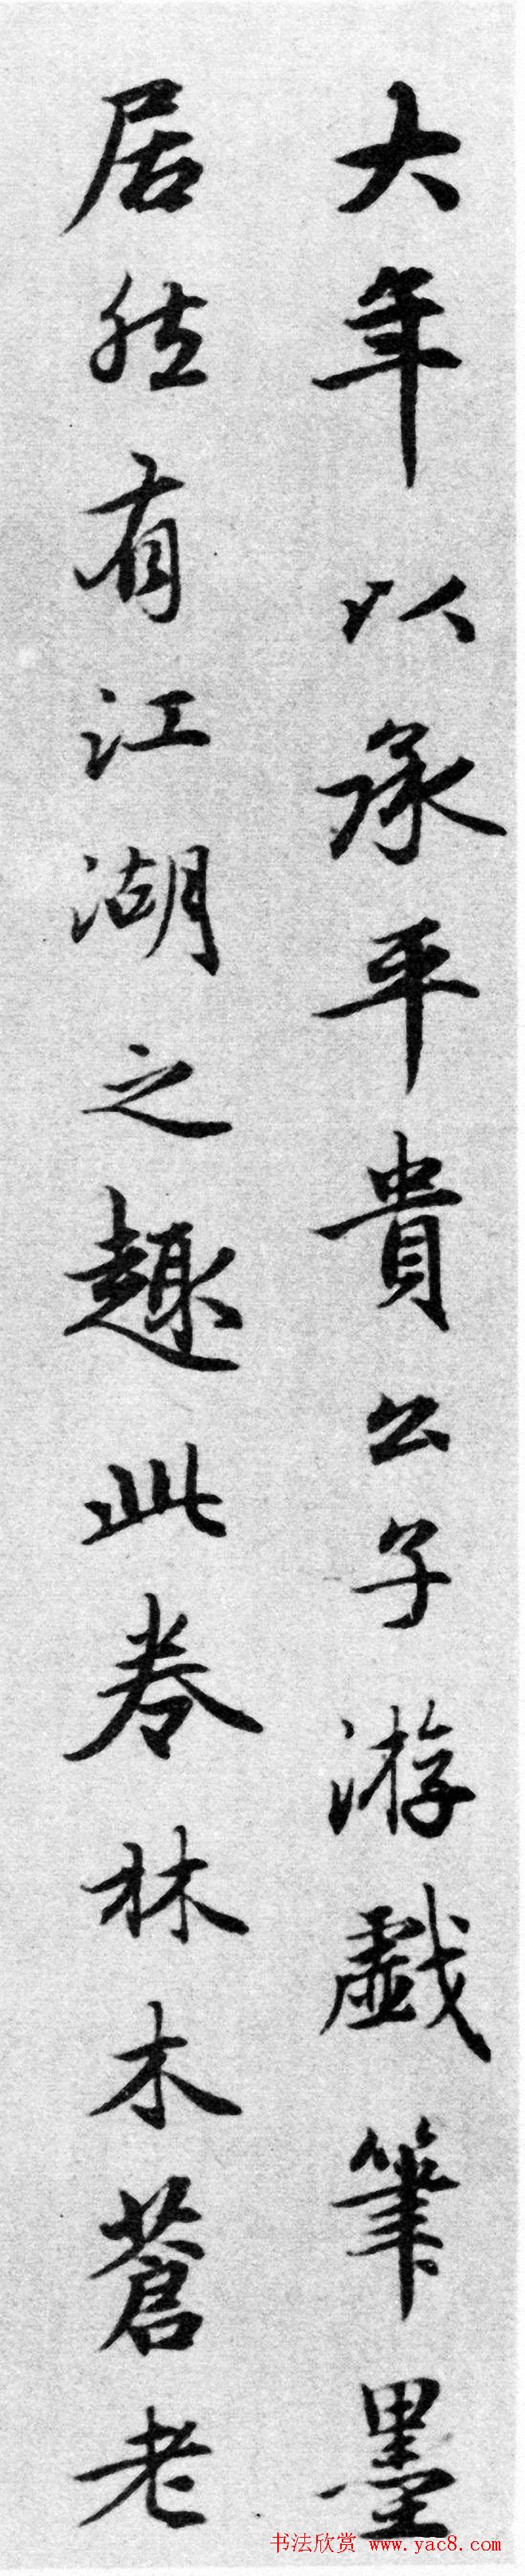 大年以承平貴公子游戲筆墨
居然有江湖之趣此卷林木蒼老
书法欣赏 www.yac8.com